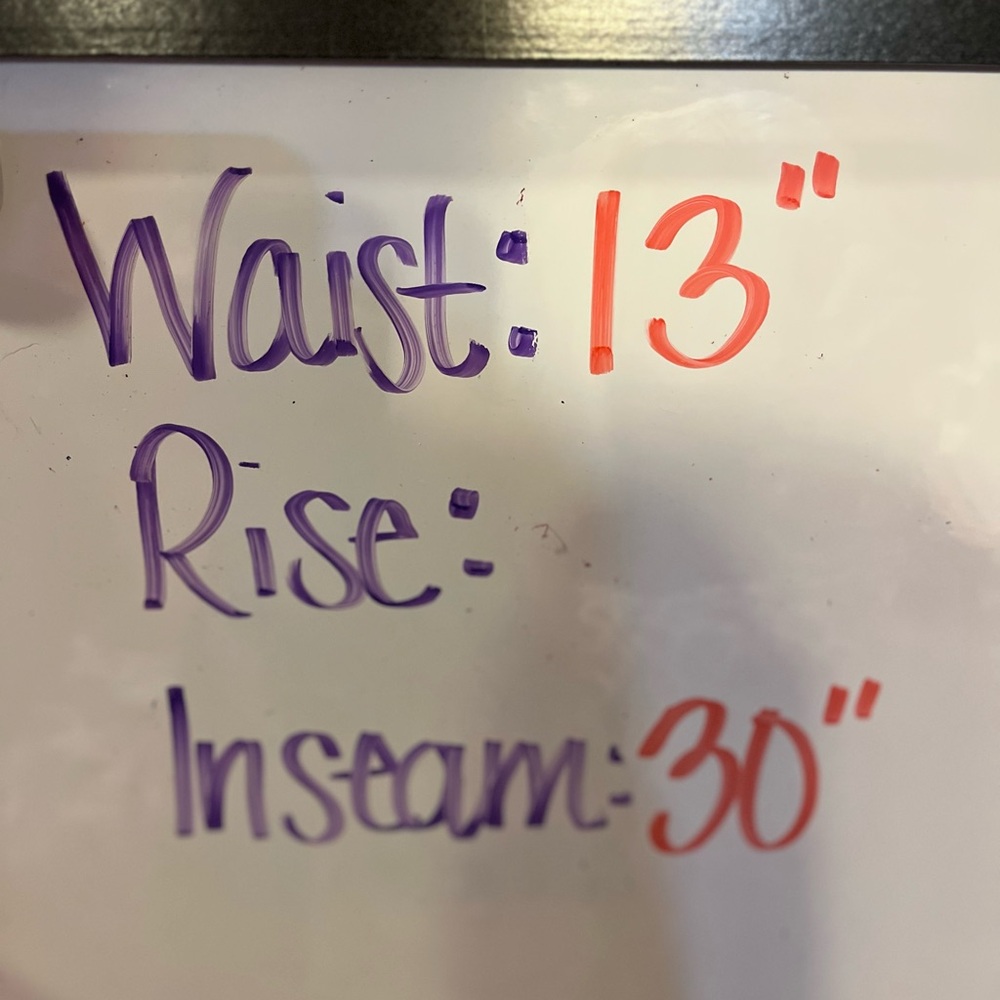 Waist: 13"
Rise:
Inseam: 30"